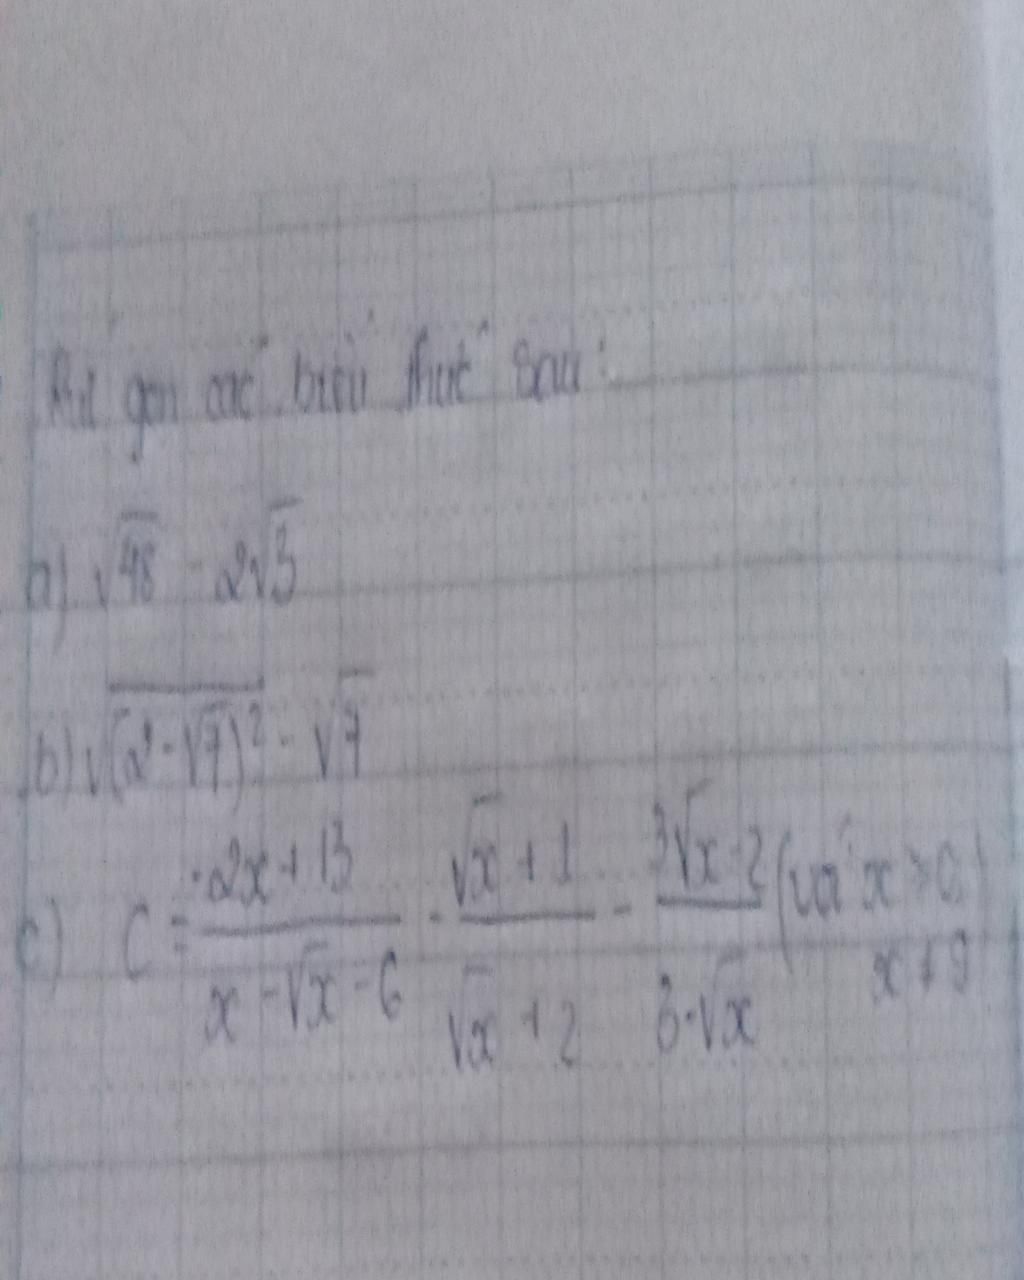 Rút gọn các biểu thức sau:
a) √48 - 2√3
b) √(2-√7)² - √7
c) C = (-2x + 13)/(x - √x - 6) - (√x + 1)/(√x + 2) - (3√x - 2)/(3 - √x) (với x ≥ 0; x ≠ 9)